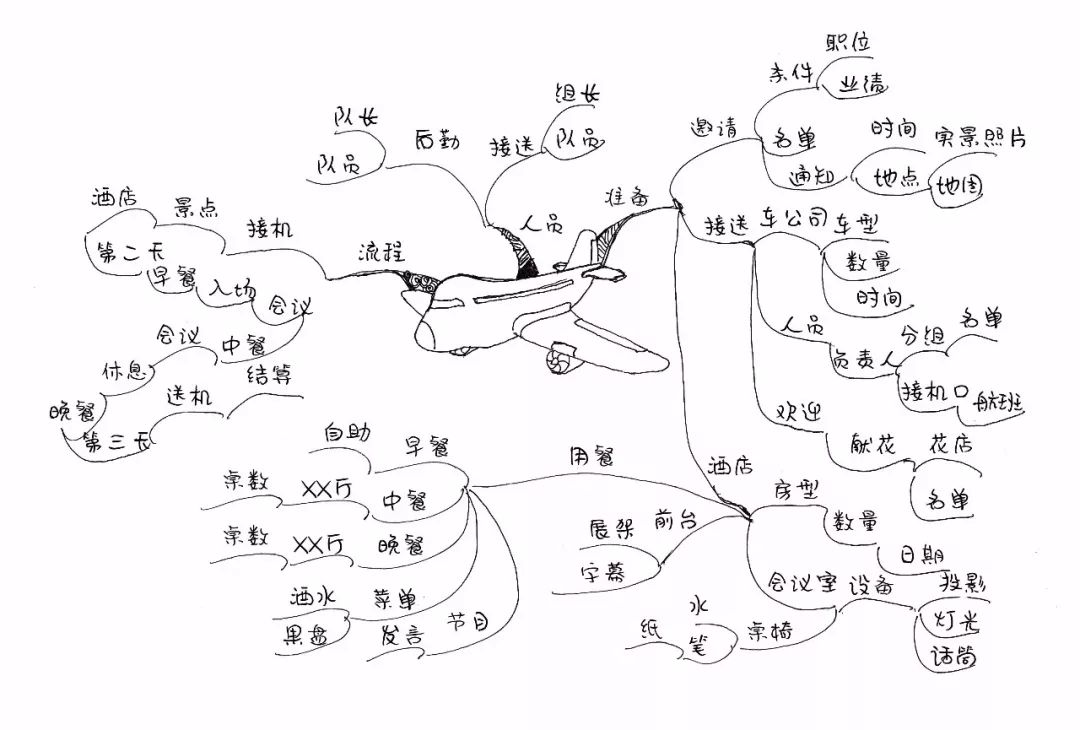 准备
邀请
条件
职位
业绩
名单
通知
时间
地点
实景照片
地图
接送
车公司
车型
数量
时间
人员
负责人
分组
名单
接机口
航班
欢迎
献花
花店
名单
酒店
房型
数量
日期
会议室
设备
投影
灯光
话筒
桌椅
水
笔
纸
前台
展架
字幕
用餐
早餐
自助
中餐
XX厅
桌数
晚餐
XX厅
桌数
菜单
酒水
果盘
节目
发言
人员
接送
组长
队员
后勤
队长
队员
流程
接机
景点
酒店
第二天
早餐
入场
会议
中餐
会议
休息
晚餐
第三天
送机
结算